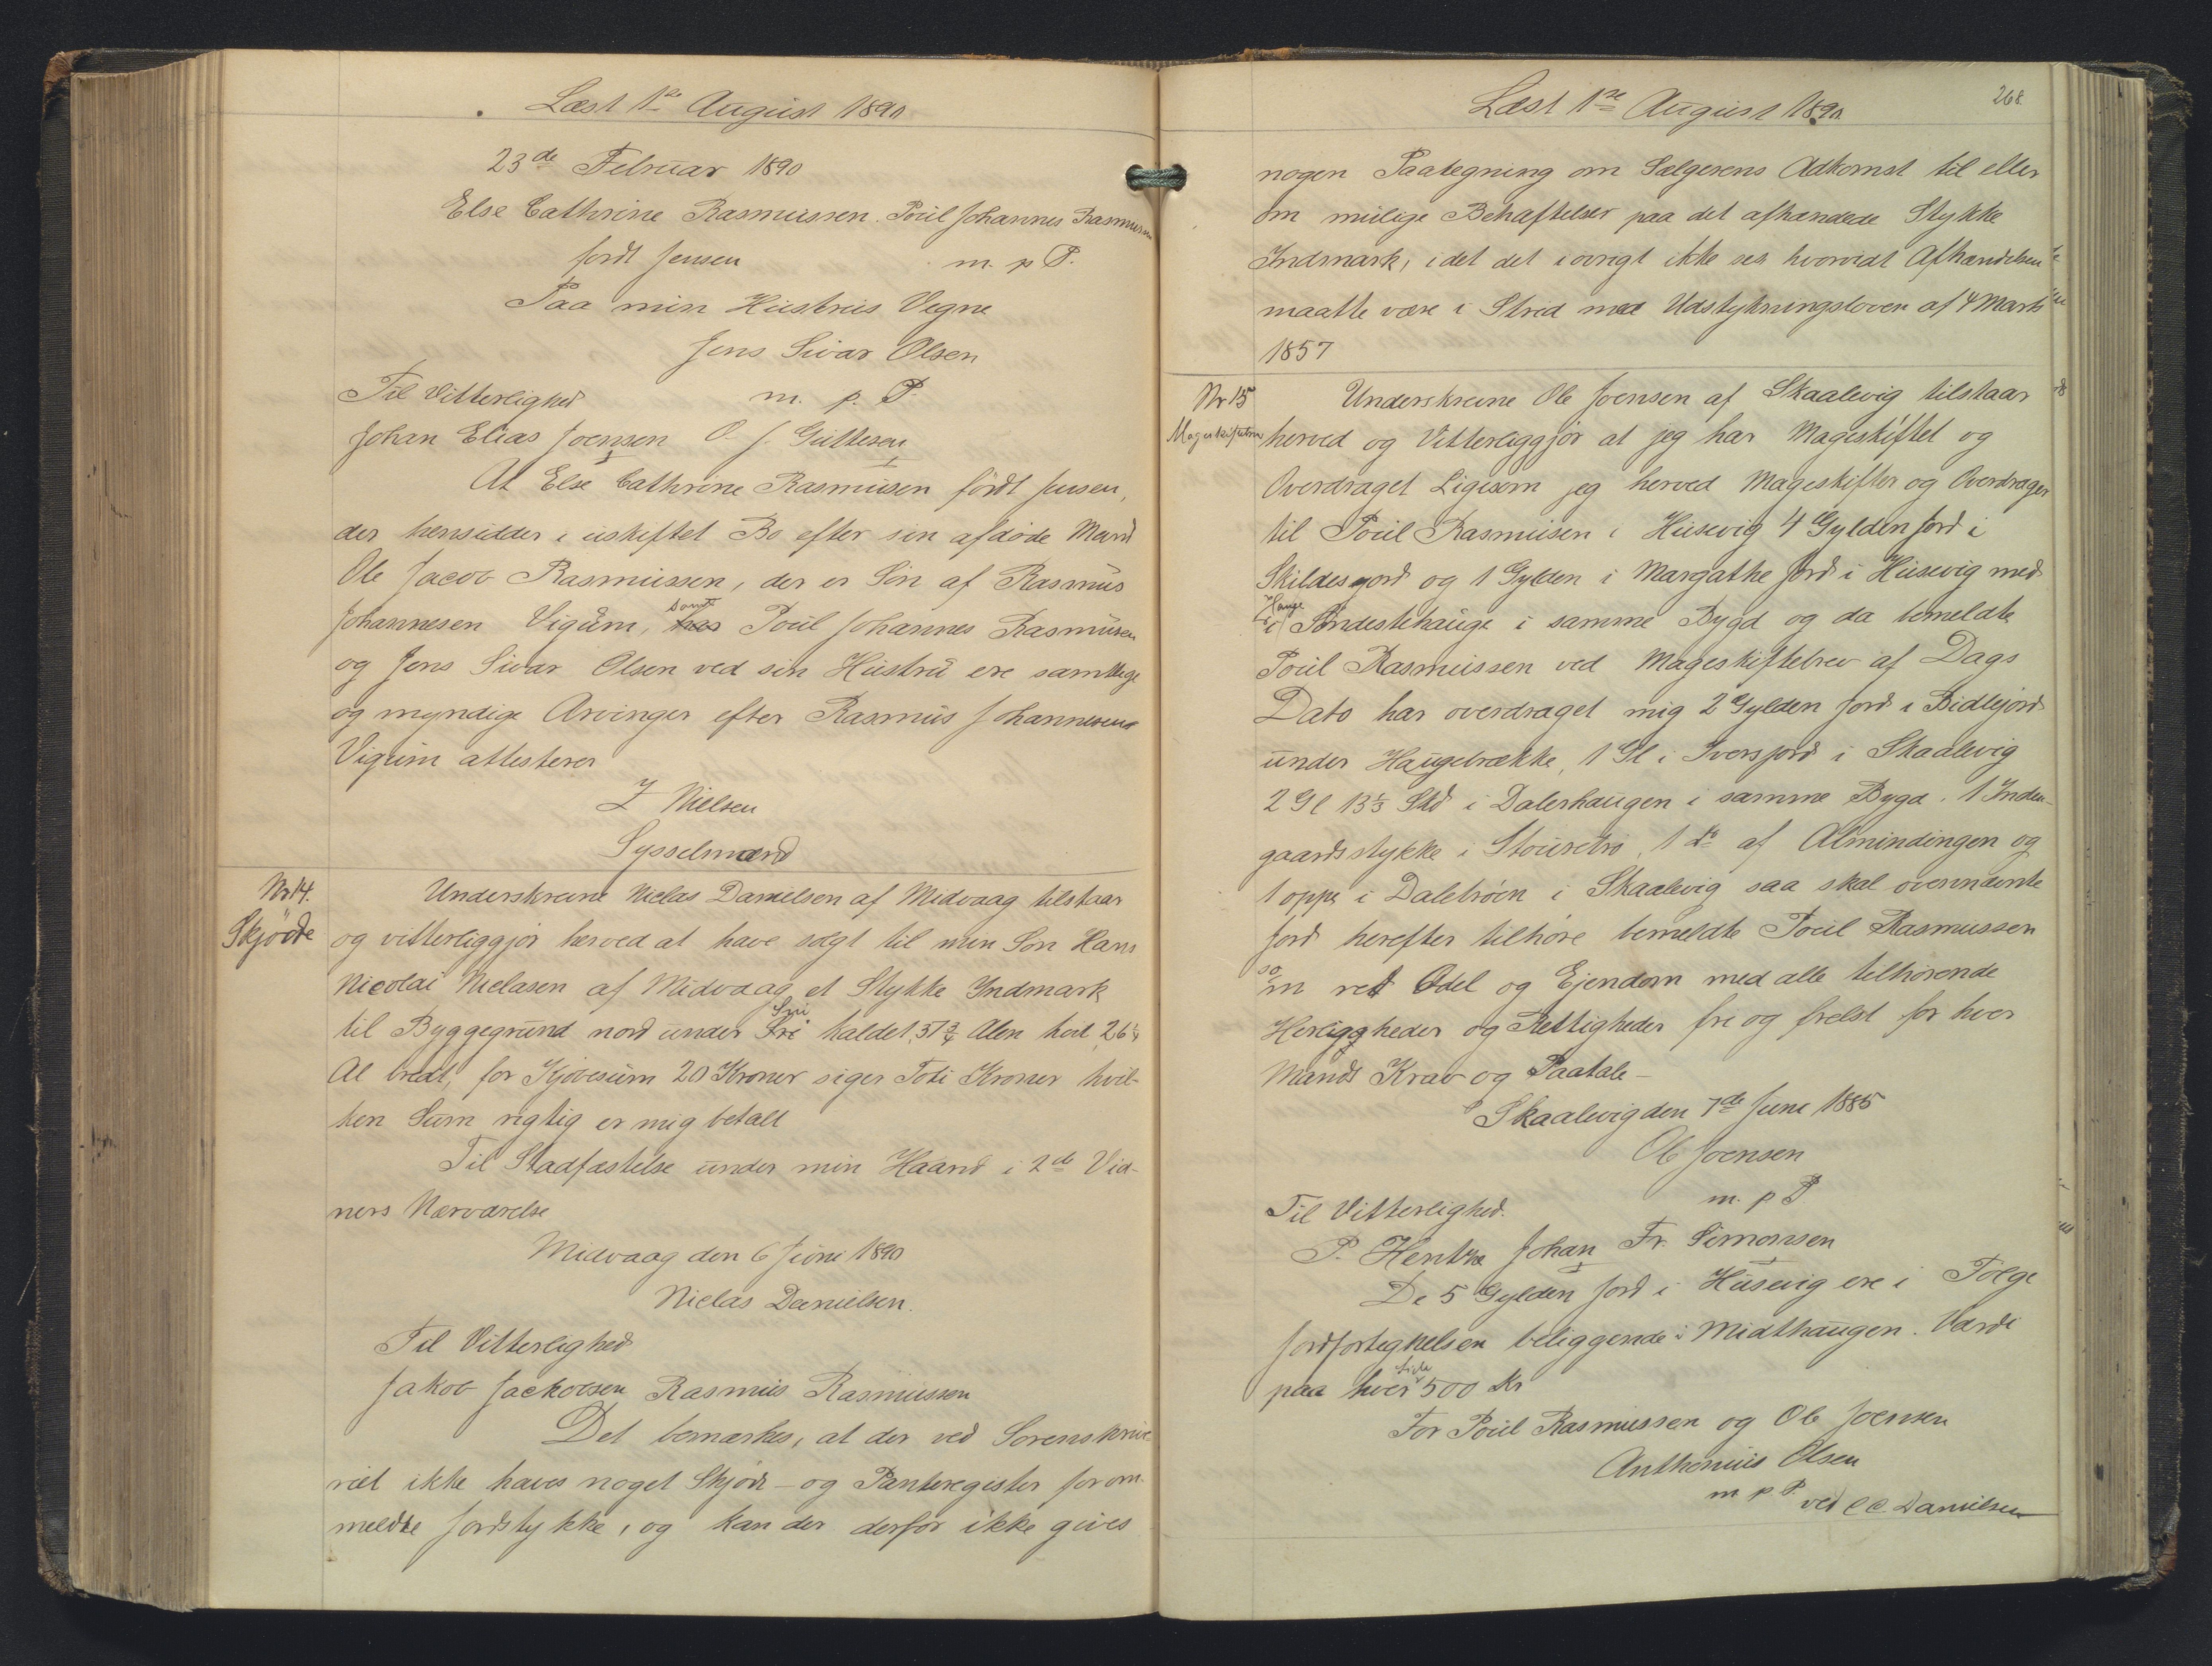 Læst 1ste August 1890
23de Februar 1890
Else Cathrine Rasmussen. Poul Johannes Rasmussen
født Jensen m. p. P.
Paa min Hustrus Vegne
Jens Sivar Olsen
Til Vitterlighed m. p. P.
Johan Elias Joensen O. J. Guttesen
At Else Cathrine Rasmusen födt Jensen,
der hensidder i uskiftet Bo efter sin afdøde Mand
Ole Jacob Rasmussen, der er Sön af Rasmus
Johannesen Vigum, samt Poul Johannes Rasmusen
og Jens Sivar Olsen ved sin Hustru ere samtlige
og myndige Arvinger efter Rasmus Johannesens
Vigum attesterer
Z Nielsen
Sysselmand
Nr 14.
Skjøde
Underskrevne Niclas Danielsen af Midvaag tilstaar
og vitterliggjør herved at have solgt til min Søn Hans
Nicolai Niclasen af Midvaag et Stykke Indmark
til Byggegrund nord under Sni haldet 51 3/4 Alen hvit 26 1/4
Al bredt, for Kjøbesum 20 Kroner siger Toti Kroner hvil-
ken Sum rigtig er mig betalt
Til Stadfæstelse under min Haand i 2de Vid-
ners Nærværelse
Midvaag den 6 Juni 1890
Niclas Danielsen.
Til Vitterlighed
Jakob Jackobsen Rasmus Rasmussen
Det bemærkes, at der ved Sorenskrive-
riet ikke haves noget Skjøde- og Panteregister for om-
meldte Jordstykke, og kan der derfor ikke gives
Læst 1ste August 1890
268
nogen Paategning om Sælgerens Adkomst til eller
om mulige Behæftelser paa det afhændede Stykke
Indmark, idet det iøvrigt ikke ses, hvorvidt Afhændelsen
maatte være i Strid med Udstykningsloven af 4 Marts
1857
Nr 15
Mageskiftebrev
Underskrevne Ole Joensen af Skaalevig tilstaar
herved og Vitterliggjør at jeg har Mageskiftet og
Overdraget Ligesom jeg herved Mageskifter og Overdrager
til Poul Rasmusen i Husevig 4 Gylden Jord i
Skildesjord og 1 Gylden i Margathe Jord i Husevig med
Hauge
i Sondestehauge i samme Bygd og da bemeldte
Poul Rasmussen ved Mageskiftebrev af Dags
Dato har overdraget mig 2 Gylden Jord i Bidlejord
under Haugebrække, 1 Gl i Iversjord i Skaalevig
2 Gl 13 1/3 Skd i Dalerhaugen i samme Bygd. 1 Inden-
gaardsstykke i Stouretrø, 1 do af Almindingen og
1 oppe i Daletröen i Skaalevig saa skal ovennævnte
Jord herefter tilhøre bemeldte Poul Rasmussen
som ret Odel og Ejendom med alle tilhørende
Herligheder og Rettigheder fri og frelst for hver
Mands Krav og Paatale-
Skaalevig den 7de June 1885
Ole Joensen
Til Vitterlighed. m. p P
P. Hentze Johan Fr. Simonsen
De 5 Gylden Jord i Husevig ere i Følge
Jordfortegnelsen beliggende i Midthaugen. Værdi
paa hver Side 500 Kr
For Poul Rasmussen og Ole Joensen
Anthonius Olsen
m p. P. ved C C Danielsen